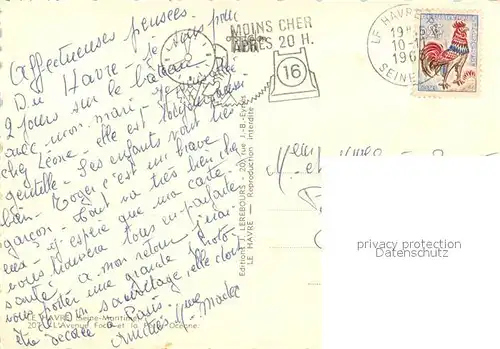 Affectueuses pensées
Du Havre - je suis pour
2 jours sur le bateau
avec mon mari - je
chez Léone - elle est toujours aussi
gentille - Ses enfants vont très
bien. Roger c'est un brave
garçon - Tout va très bien chez
eux - et espère que ma carte
vous trouvera tous en parfaite
santé. à mon retour j'irai
vous porter une grande photo
son sauvetage, elle doit
être décorée à Paris.
Amitiés
MOINS CHER
APRÈS 20 H.
16
LE HAVRE
10-1
196
SEINE
Editions LEREBOURS - 20, rue J.-B.-Eyriès
LE HAVRE Reproduction interdite
LE HAVRE (Seine-Maritime)
207. - L'Avenue Foch et la Porte Océane.
privacy protection
Datenschutz